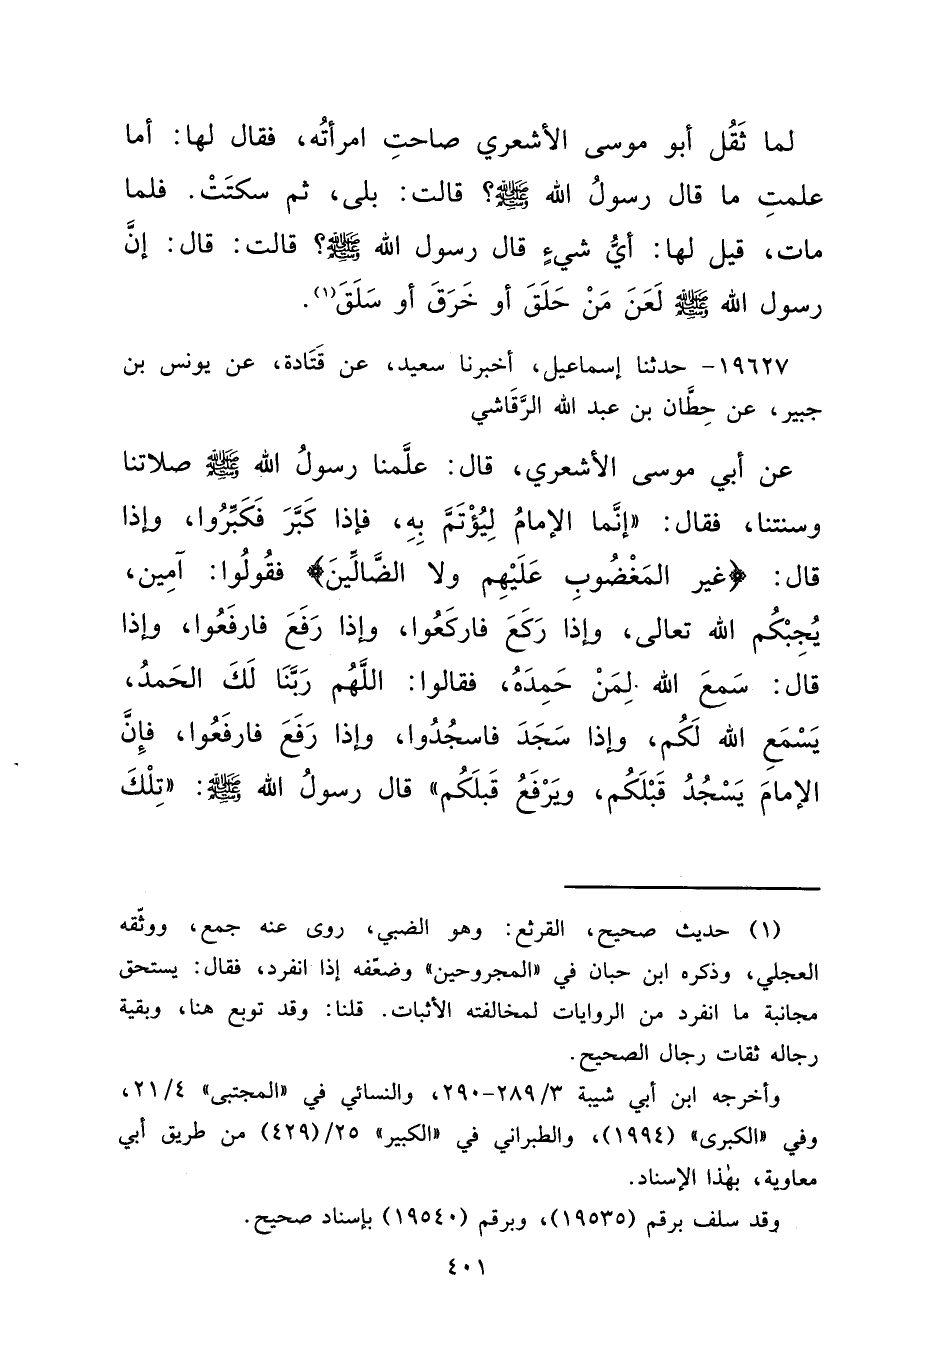 لما ثَقُل أبو موسى الأشعري صاحتِ امرأتُه، فقال لها: أما
علمتِ ما قال رسولُ الله ﷺ؟ قالت: بلى، ثم سكتَتْ. فلما
مات، قيل لها: أيُّ شيءٍ قال رسول الله ﷺ؟ قالت: قال: إنَّ
رسول الله ﷺ لَعَنَ مَنْ حَلَقَ أو خَرَقَ أو سَلَقَ(١).
١٩٦٢٧- حدثنا إسماعيل، أخبرنا سعيد، عن قَتَادة، عن يونس بن
جبير، عن حِطَّان بن عبد الله الرَّقَاشي
عن أبي موسى الأشعري، قال: علَّمنا رسولُ الله ﷺ صلاتنا
وسنتنا، فقال: «إنَّما الإمامُ لِيُؤْتَمَّ بِهِ، فإذا كَبَّرَ فَكَبِّرُوا، وإذا
قال: ﴿غير المَغْضُوبِ عَلَيْهِم ولا الضَّالِّينَ﴾ فقُولُوا: آمِين،
يُجِبْكُم الله تعالى، وإذا رَكَعَ فاركَعُوا، وإذا رَفَعَ فارفَعُوا، وإذا
قال: سَمِعَ الله لِمَنْ حَمِدَهُ، فقالوا: اللَّهُم رَبَّنَا لَكَ الحَمدُ،
يَسْمَعِ الله لَكُم، وإذا سَجَدَ فاسجُدُوا، وإذا رَفَعَ فارفَعُوا، فإِنَّ
الإمامَ يَسْجُدُ قَبْلَكُم، ويَرْفَعُ قَبلَكُم» قال رسولُ الله ﷺ: «تِلْكَ
(١) حديث صحيح، القرثع: وهو الضبي، روى عنه جمع، ووثّقه
العجلي، وذكره ابن حبان في «المجروحين» وضعّفه إذا انفرد، فقال: يستحق
مجانبة ما انفرد من الروايات لمخالفته الأثبات. قلنا: وقد توبع هنا، وبقية
رجاله ثقات رجال الصحيح.
وأخرجه ابن أبي شيبة ٢٨٩/٣-٢٩٠، والنسائي في «المجتبى» ٢١/٤،
وفي «الكبرى» (١٩٩٤)، والطبراني في «الكبير» ٢٥/(٤٢٩) من طريق أبي
معاوية، بهٰذا الإسناد.
وقد سلف برقم (١٩٥٣٥)، وبرقم (١٩٥٤٠) بإسناد صحيح.
٤٠١